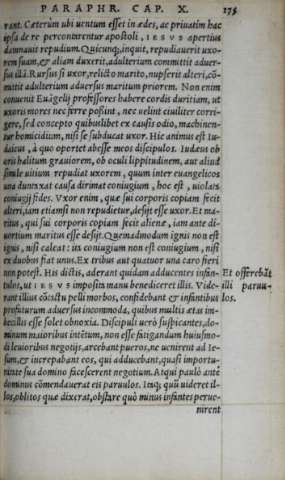 PARAPHR. CAP. X. 175
rant. Cæterum ubi uentum esset in ædes, ac priuatim hac
ipsa de re percontarentur apostoli, IESVS apertius
damnauit repudium. Quicunq;, inquit, repudiauerit uxo-
rem suam, & aliam duxerit, adulterium committit aduer-
sus illã. Rursus si uxor, relicto marito, nupserit alteri, cõ-
mittit adulterium aduersus maritum priorem. Non enim
conuenit Euãgelij professores habere cordis duritiam, ut
uxoris mores nec ferre possint, nec uelint ciuiliter corri-
gere, sed concepto quibuslibet ex causis odio, machinen-
tur homicidium, nisi se subducat uxor. Hic animus est Iu-
daicus, à quo oportet abesse meos discipulos. Iudæus ob
oris halitum grauiorem, ob oculi lippitudinem, aut aliud
simile uitium repudiat uxorem, quum inter euangelicos
una duntaxat causa dirimat coniugium, hoc est, uiolata
coniugij fides. Vxor enim, quæ sui corporis copiam fecit
alteri, iam etiamsi non repudietur, desijt esse uxor. Et ma-
ritus, qui sui corporis copiam fecit alienæ, iam ante di-
uortium maritus esse desijt. Quemadmodum ignis non est
ignis, nisi caleat: ita coniugium non est coniugium, nisi
ex duobus fiat unus. Ex tribus aut quatuor una caro fieri
non potest. His dictis, aderant quidam adducentes infan-
tulos, ut IESVS imposita manu benediceret illis. Vide-
rant illius cõtactu pelli morbos, confidebant & infantibus
profuturum aduersus incommoda, quibus multis ætas im-
becillis esse solet obnoxia. Discipuli uerò suspicantes, do-
minum maioribus intẽtum, non esse fatigandum huiusmo-
di leuioribus negotijs, arcebant pueros, ne uenirent ad Ie-
sum, & increpabant eos, qui adducebant, quasi importu-
nitate sua domino facesserent negotium. Atqui paulò antè
dominus cõmendauerat eis paruulos. Itaq; quũ uideret il-
los, oblitos quæ dixerat, obstare quò minus infantes perue-
nirent
Et offerebãt
illi paruu-
los.